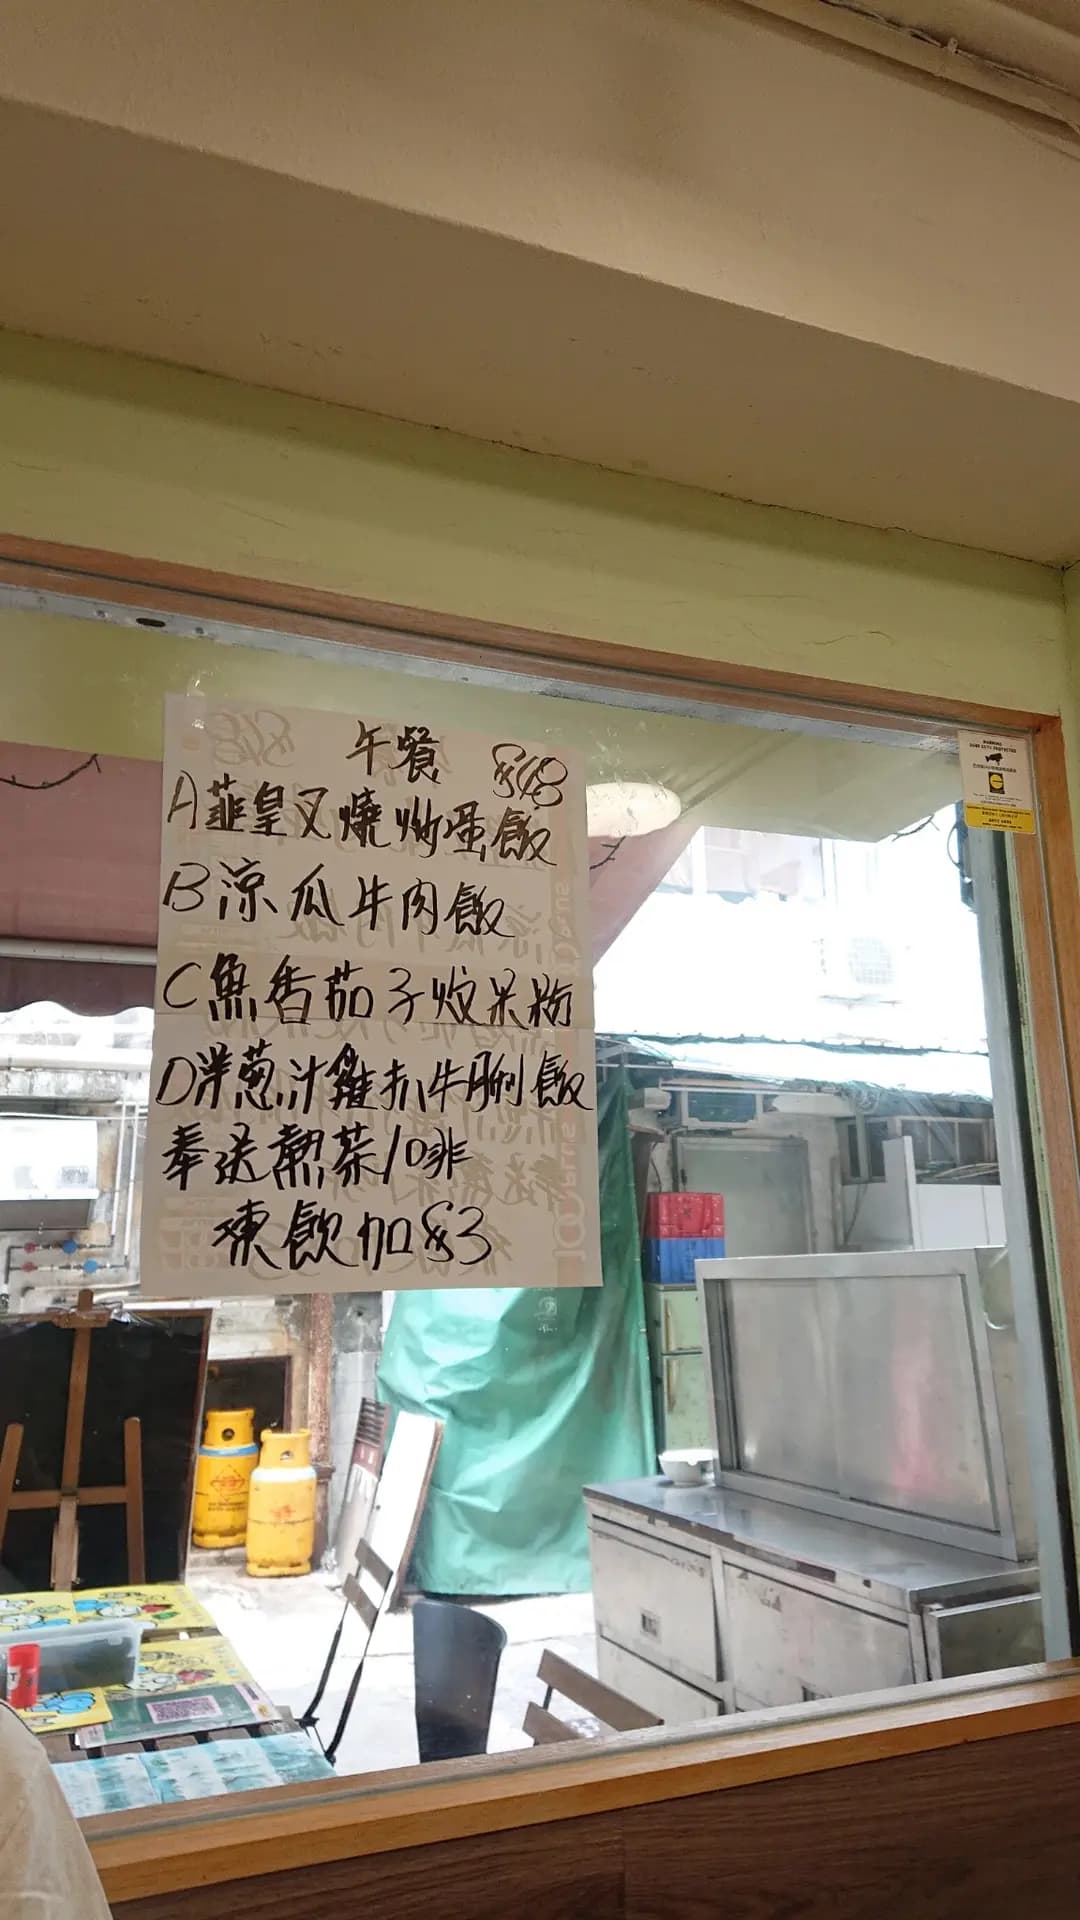 午餐 $48
A韮皇叉燒炒蛋飯
B涼瓜牛肉飯
C魚香茄子炆米粉
D洋葱汁雞扒牛脷飯
奉送熱茶/啡
凍飲加$3
WARNING